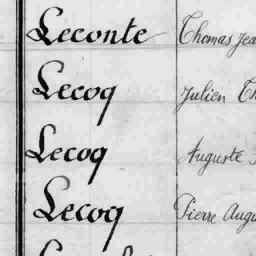 Leconte Thomas Jea
Lecoq Julien Th
Lecoq Auguste
Lecoq Pierre Augu